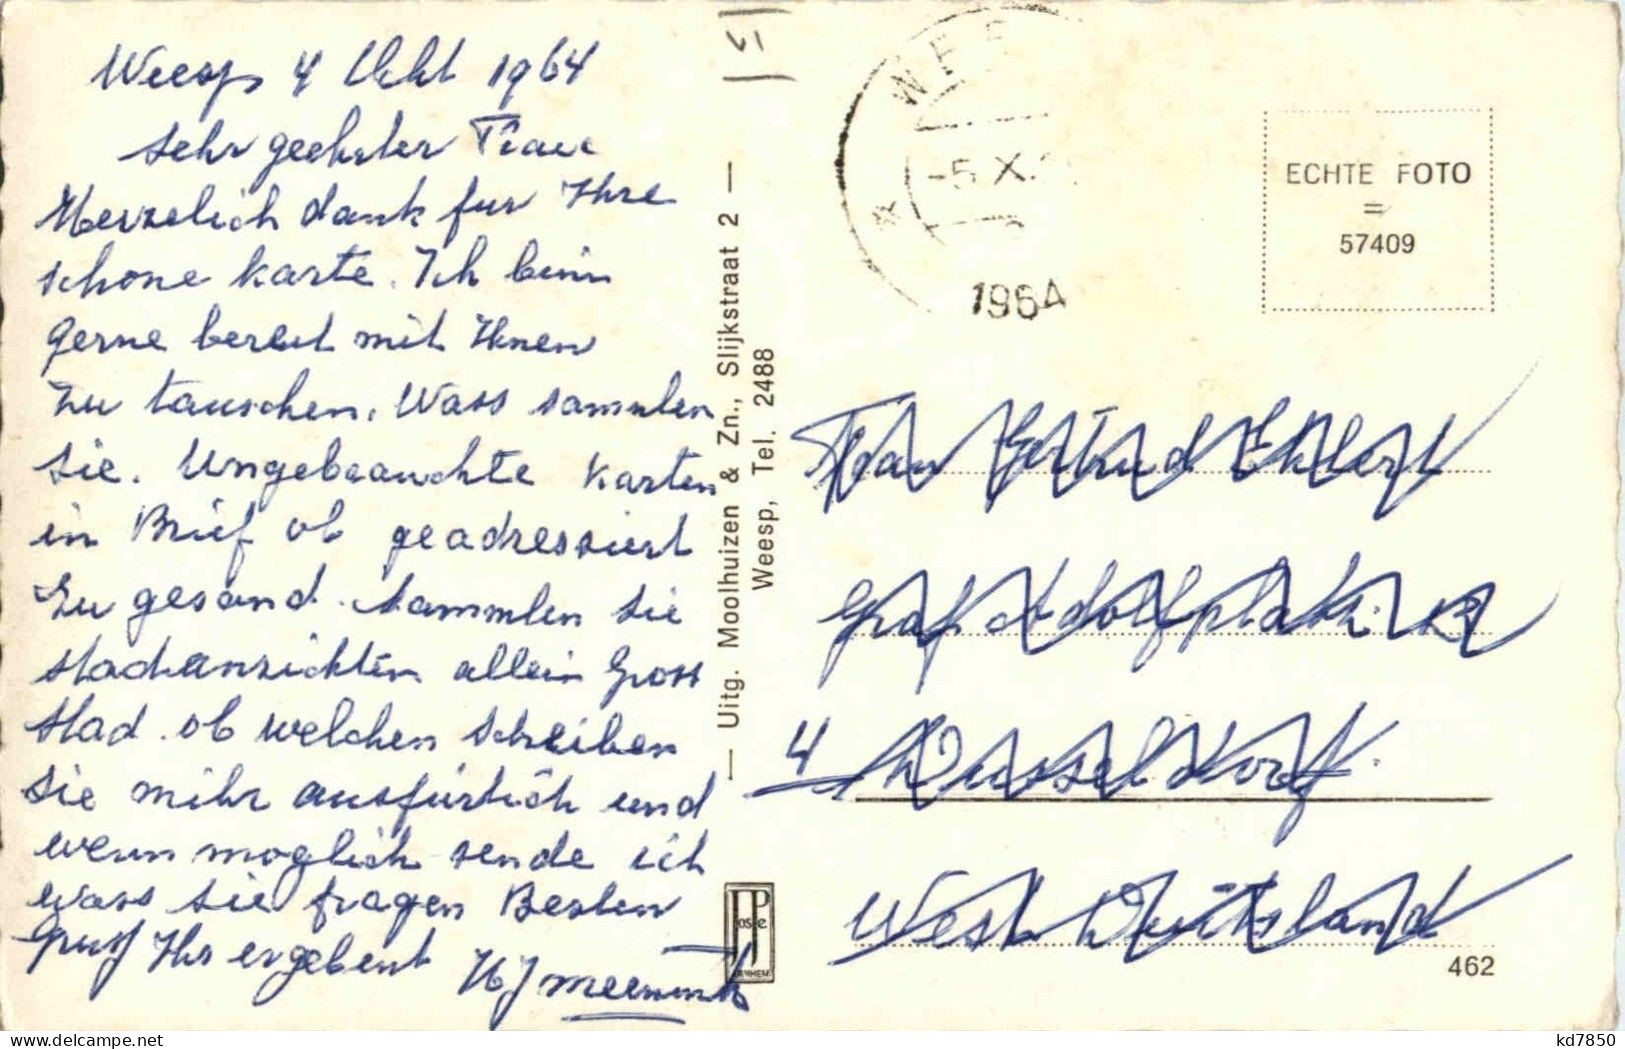 Weesp 4 Okt 1964
sehr geehrter Frau
Herzelich dank fur Ihre
schone karte. Ich binn
gerne bereit mit Ihnen
zu tauschen. Wass sammlen
sie. Ungebrauchte karten
in Brief ob geadressiert
zu gesand. sammlen sie
stadtanzichten allein Gross
stad. ob welchen schreiben
sie mihr ausfürlich und
wenn moglich sende ich
wass sie fragen Besten
Gruss Ihr ergebent HJ
— Uitg. Moolhuizen & Zn., Slijkstraat 2 —
Weesp, Tel. 2488
WEES
-5.X.
1964
ECHTE FOTO
=
57409
Frau Gertrud Ehlert
Graf Adolfplatz 12
4 Dusseldorf.
West Deutsland
462
Postie
ARNHEM
delcampe.net
kd7850